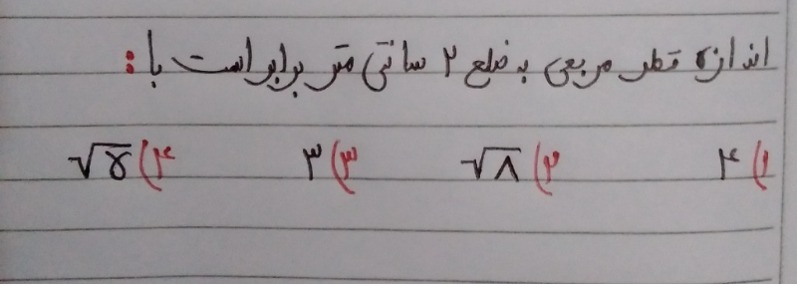 اندازه قطر مربعی به ضلع ۲ سانتی متر برابر است با :
۱) ۴ ۲) √۸ ۳) ۳ ۴) √۵